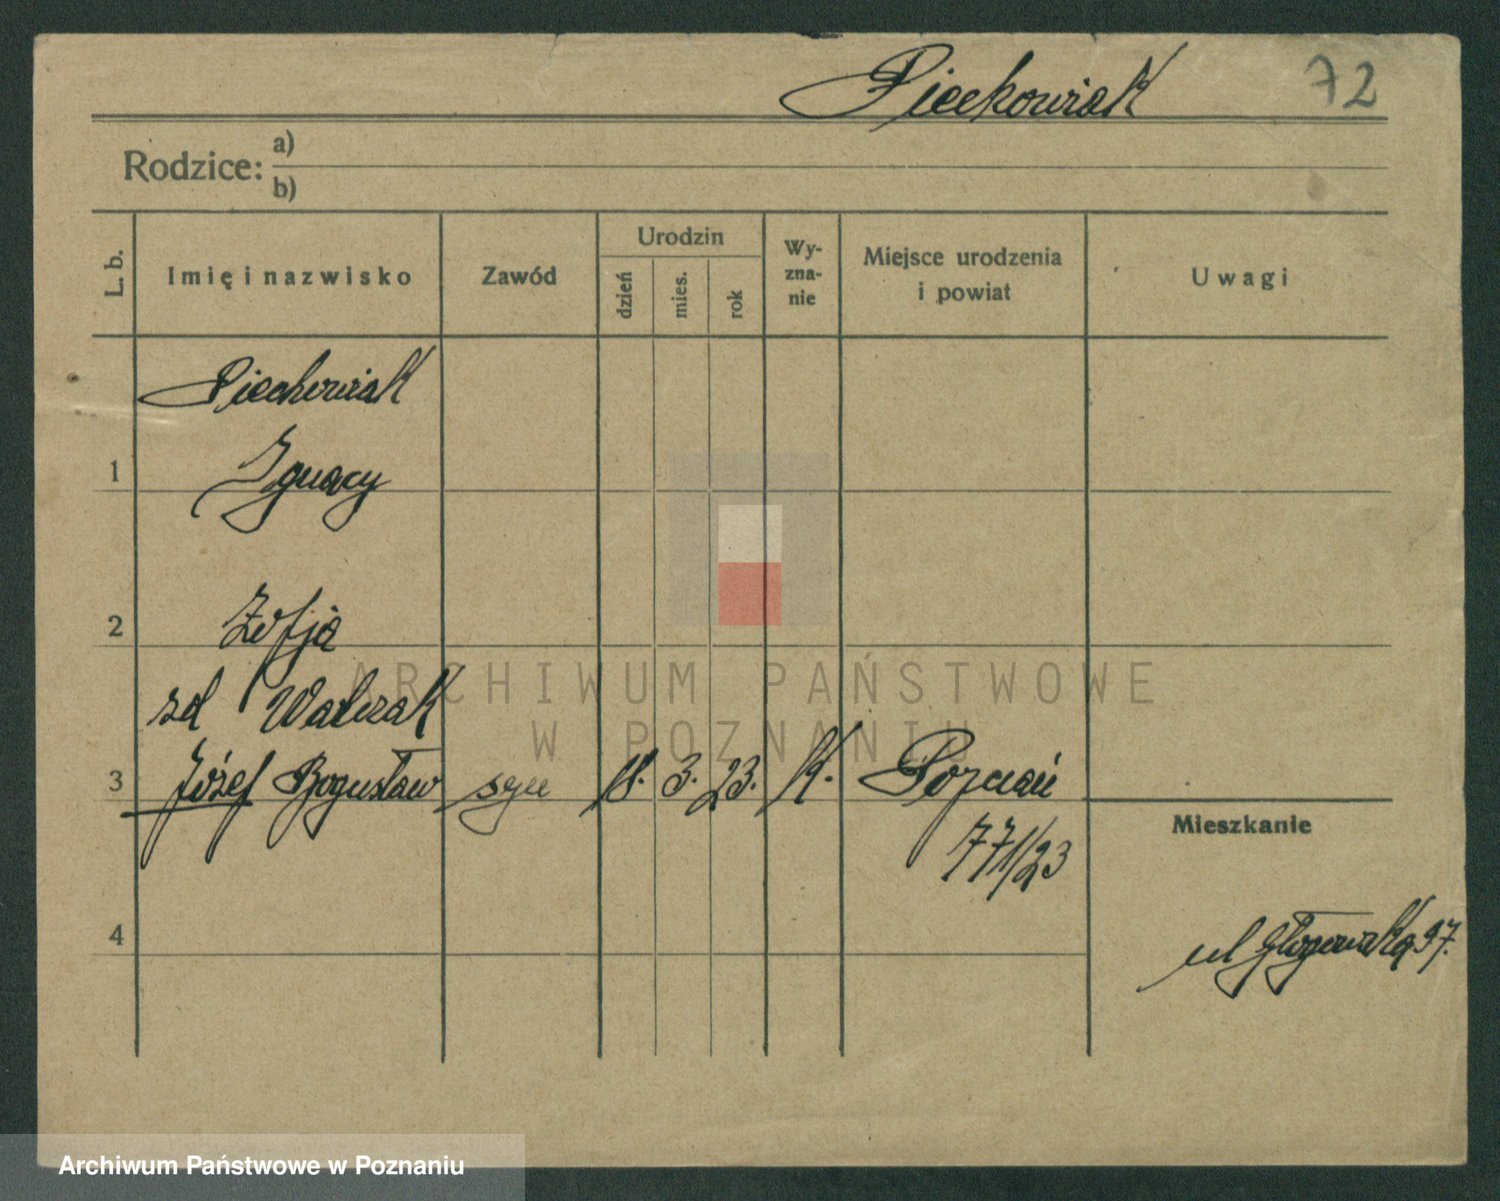 Piechowiak 72
Rodzice: a)
b)
L. b. Imię i nazwisko Zawód Urodzin dzień mies. rok Wyznanie Miejsce urodzenia i powiat Uwagi
Piechowiak
1 Ignacy
2 Zofja
zd Walczak
3 Józef Bogusław syn 18. 3. 23. k. Poznań
771/23
Mieszkanie
4
ul Głogowska 97.
ARCHIWUM PAŃSTWOWE
W POZNANIU
Archiwum Państwowe w Poznaniu